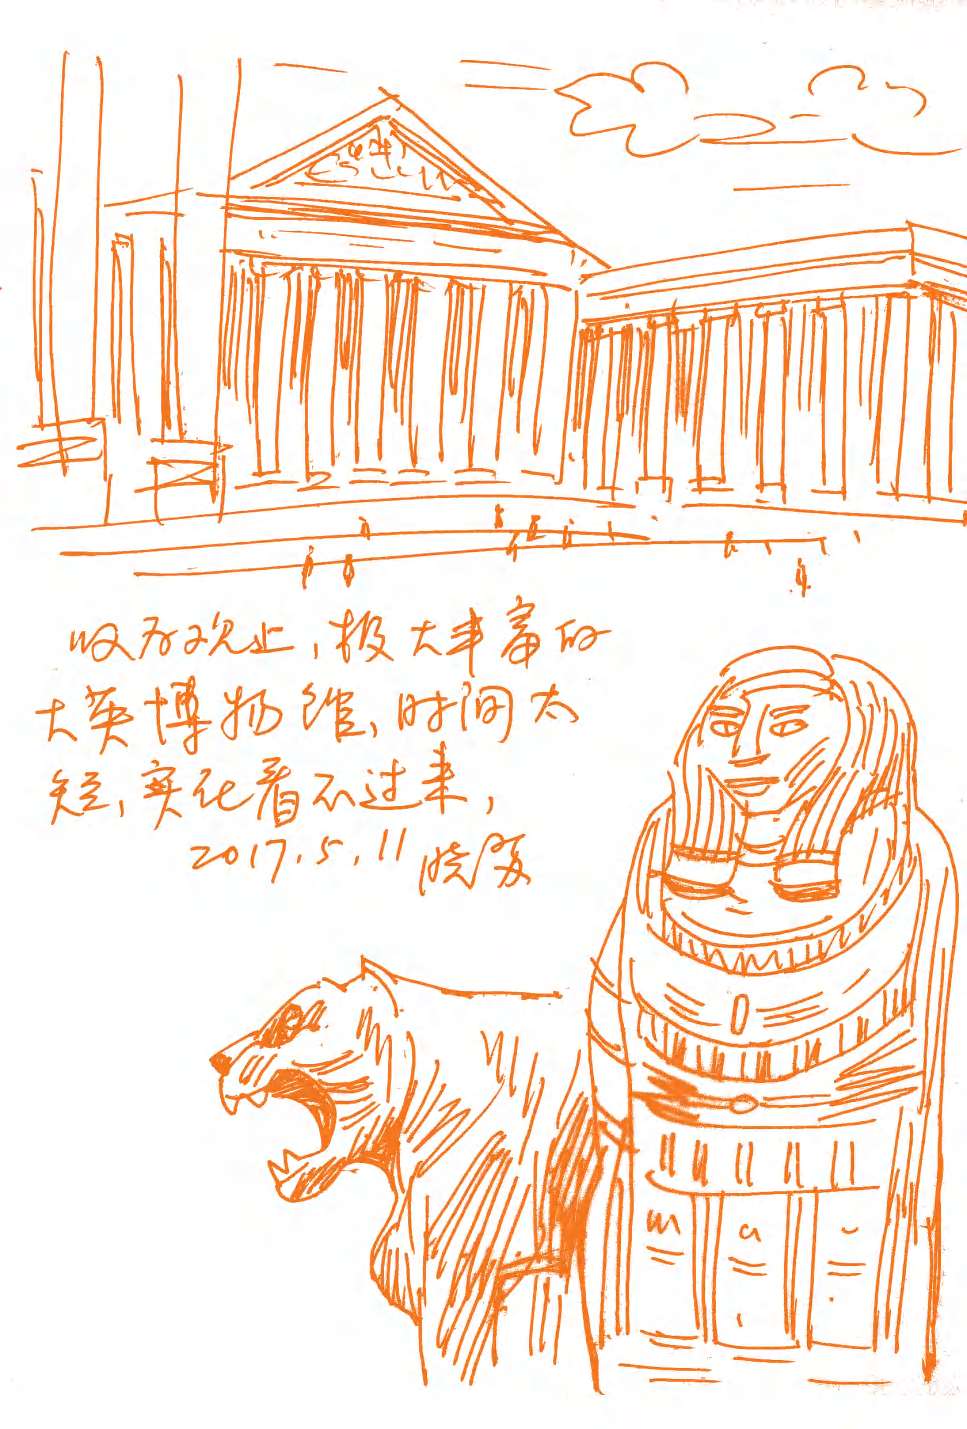 叹为观止，极大丰富的
大英博物馆，时间太
短，实在看不过来，
2017.5.11 晓